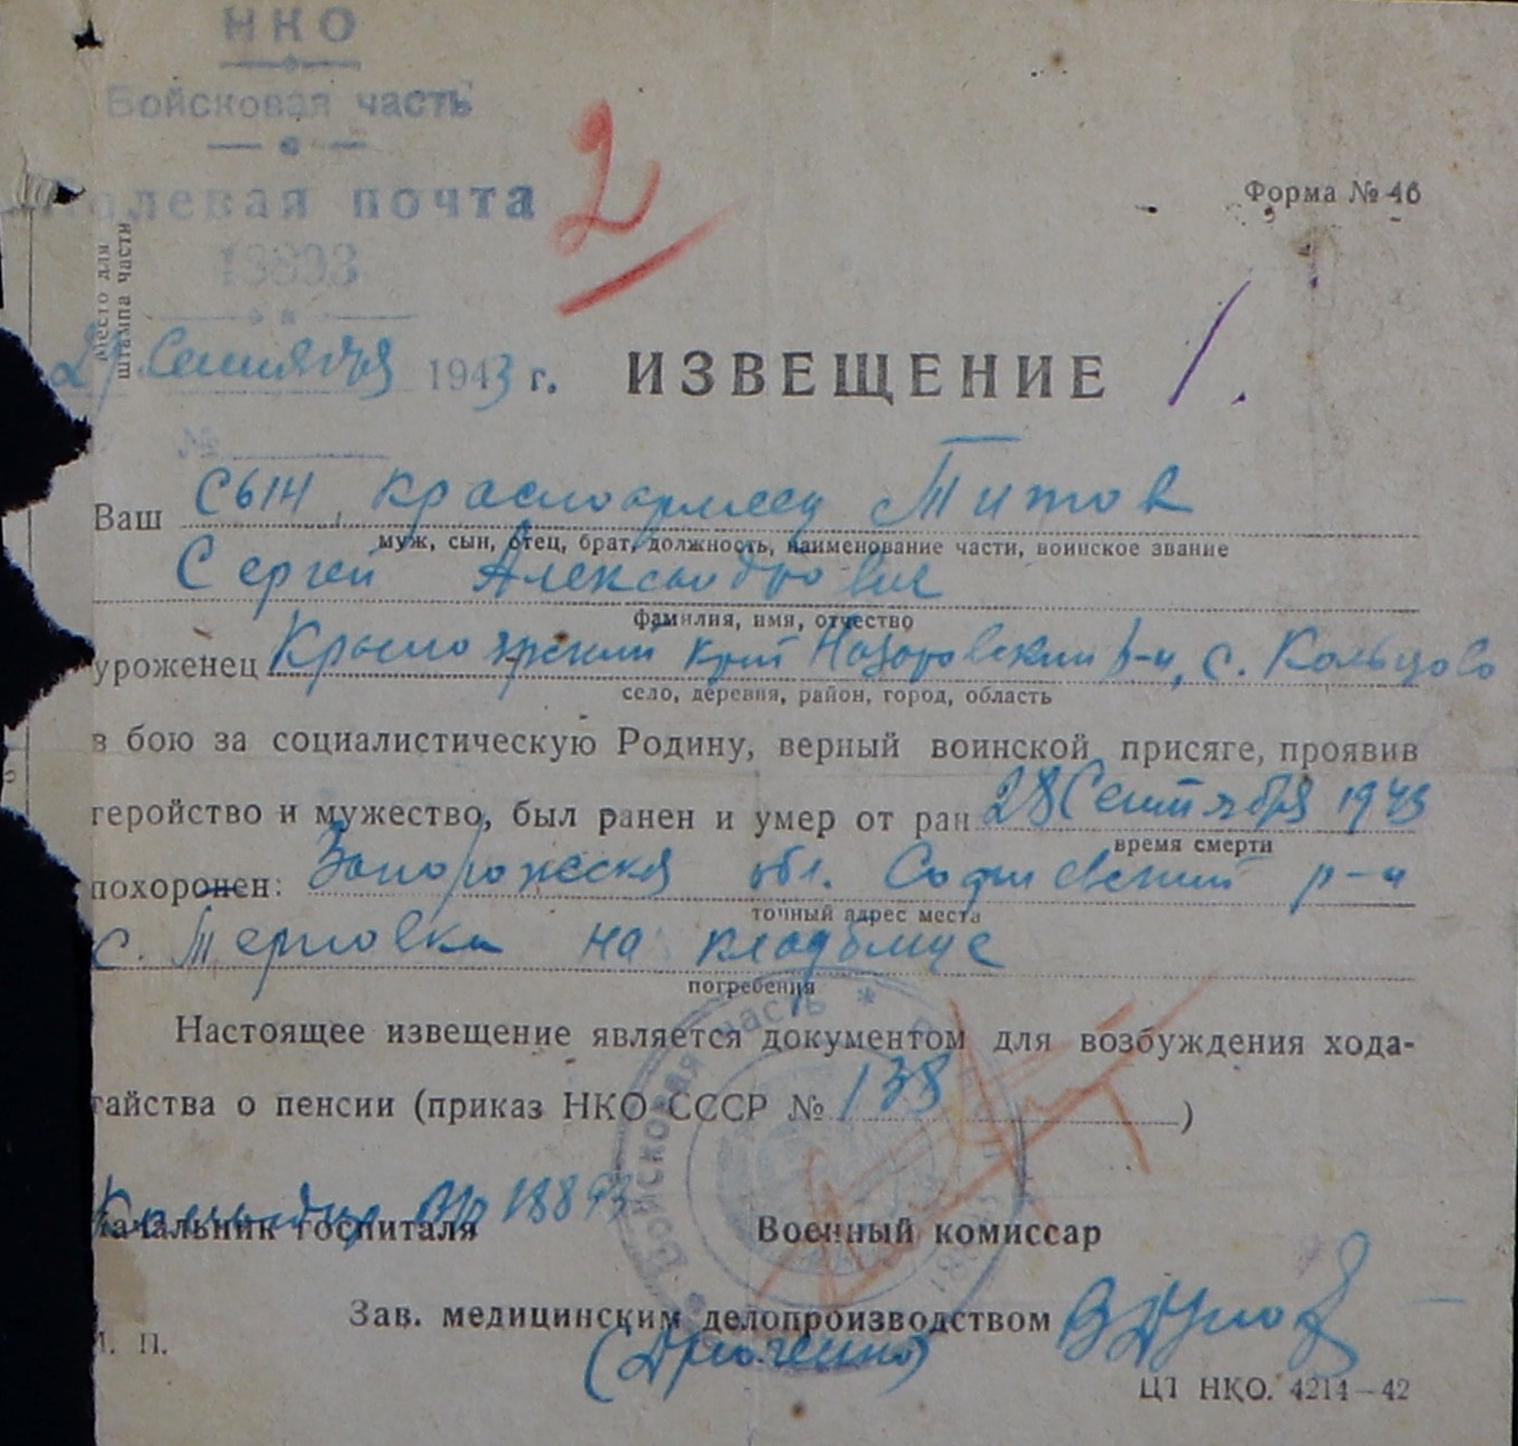 НКО
Войсковая часть
Полевая почта
2
Форма № 46
место для
штампа части
Сентября 1943 г.
ИЗВЕЩЕНИЕ 1.
№
Ваш сын, красноармеец Титов
муж, сын, отец, брат, должность, наименование части, воинское звание
Сергей Александрович
фамилия, имя, отчество
уроженец Красноярский край Назаровский р-н, с. Кольцово
село, деревня, район, город, область
в бою за социалистическую Родину, верный воинской присяге, проявив
геройство и мужество, был ранен и умер от ран 28 Сентября 1943
время смерти
похоронен: Запорожская обл. Софиевский р-н
точный адрес места
с. Терновка на кладбище
погребения
Настоящее извещение является документом для возбуждения хода-
тайства о пенсии (приказ НКО СССР № 138 )
Войсковая часть *
Командир
начальник госпиталя
Военный комиссар
Зав. медицинским делопроизводством
М. П.
ЦТ НКО. 4214—42